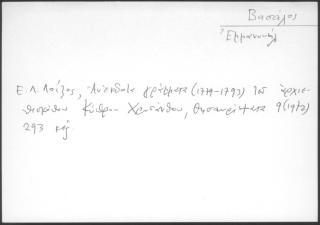 Βασάλος
Ἑρμανουήλ
Ε. Λ. Λοΐζος, Ἀνέκδοτα γράμματα (1779-1793) τοῦ ἀρχιε-
πισκόπου Κύπρου Χρυσάνθου, Θησαυρίσματα 9 (1972)
293 κἑξ.